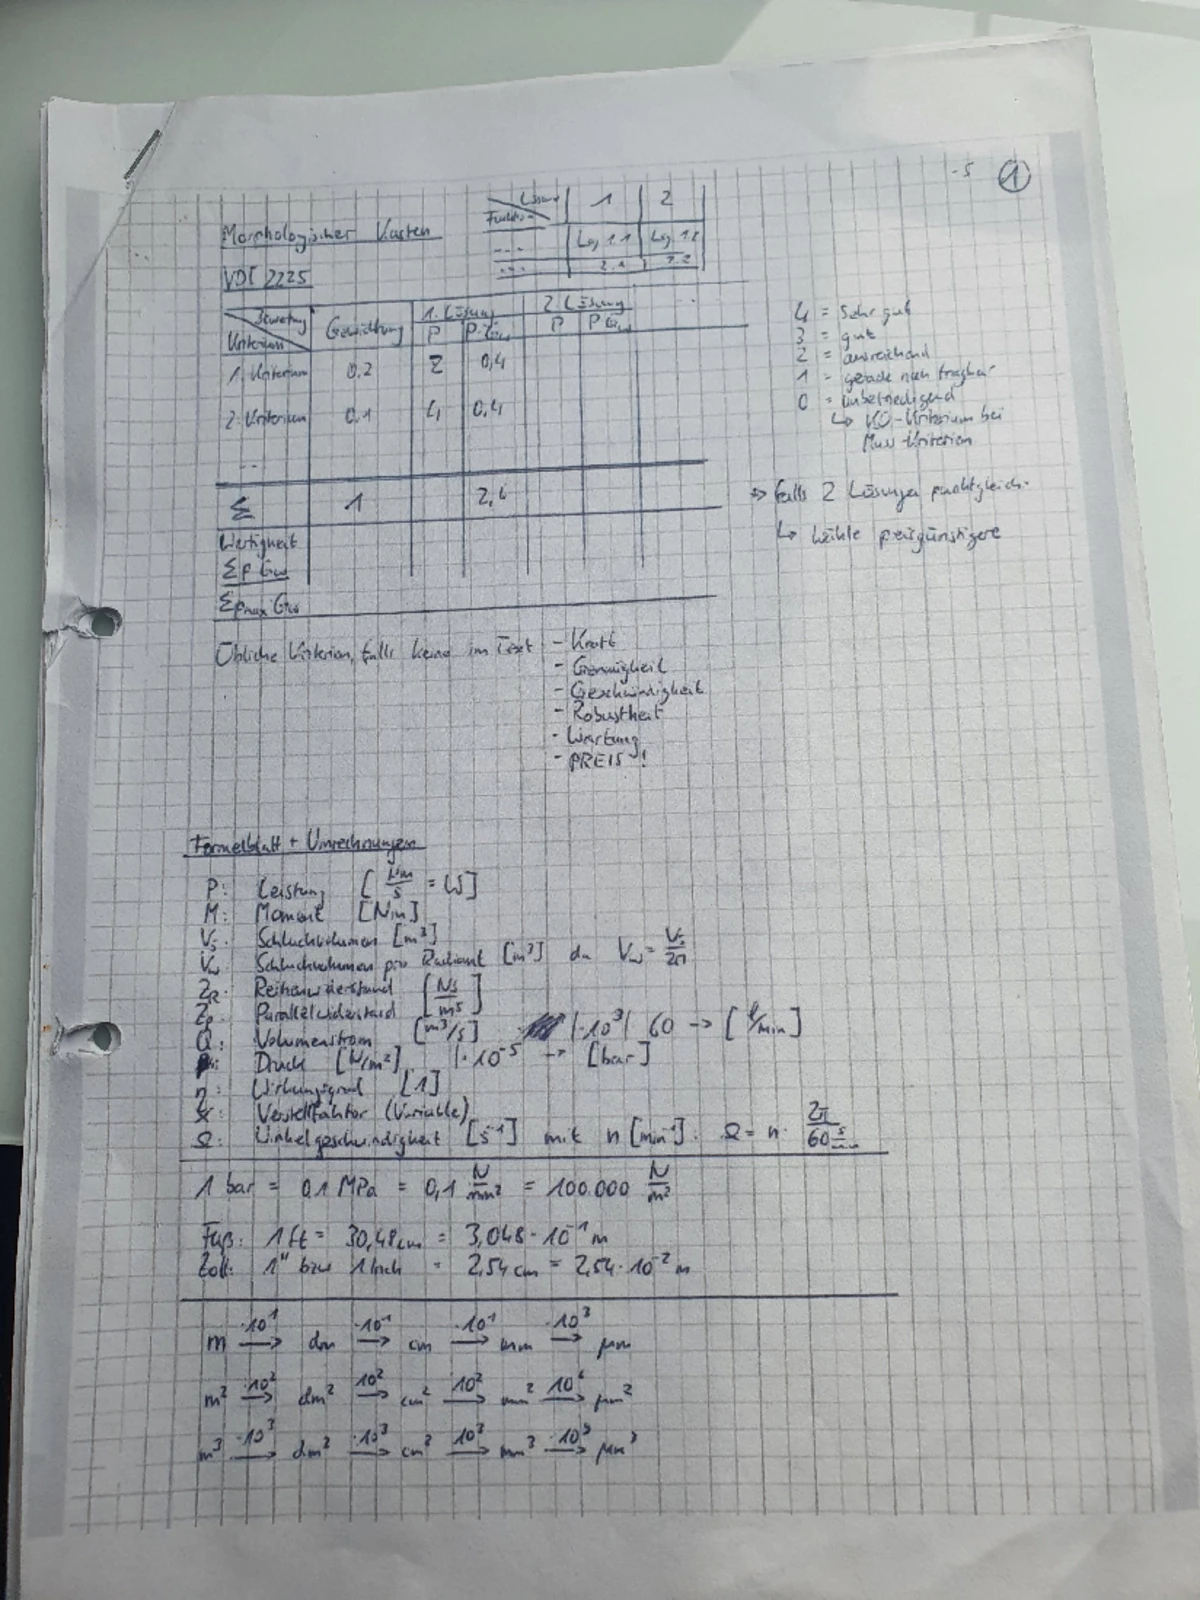 -5 ①
Lösung 1 2
Funktion
.... Lsg 1.1 Lsg 1.2
.... 2.1 2.2
Morphologischer Kasten
VDI 2225
Gewichtung 1. Lösung 2. Lösung ..
Kriterium P P·Gw P P·Gw
1. Kriterium 0,2 2 0,4
2. Kriterium 0,1 4 0,4
..
Σ 1 2,4
Wertigkeit
ΣP Gw
ΣPmax·Gw
4 = Sehr gut
3 = gut
2 = ausreichend
1 = gerade noch tragbar
0 = unbefriedigend
↳ KO-Kriterium bei
Muss-Kriterien
=> Falls 2 Lösungen punktgleich.
↳ Wähle preisgünstigere
Übliche Kriterien, falls keine im Text - Kraft
- Genauigkeit
- Geschwindigkeit
- Robustheit
- Wartung
- PREIS !
Formelblatt + Umrechnungen
P: Leistung [Nm/s = W]
M: Moment [Nm]
Vs: Schluckvolumen [m³]
Vω: Schluckvolumen pro Radiant [m³] da Vω = Vs/2π
ZR: Reihenwiderstand [Ns/m⁵]
Zp: Parallelwiderstand
Q: Volumenstrom [m³/s] |·10³| 60 → [l/min]
p: Druck [N/m²] |·10⁻⁵ → [bar]
η: Wirkungsgrad [1]
α: Verstellfaktor (Variable)
Ω: Winkelgeschwindigkeit [s⁻¹] mit n [min⁻¹]: Ω = n · 2π/60 s/min
1 bar = 0,1 MPa = 0,1 N/mm² = 100.000 N/m²
Fuß: 1 ft = 30,48 cm = 3,048·10⁻¹ m
Zoll: 1" bzw 1 Inch = 2,54 cm = 2,54·10⁻² m
m ·10¹→ dm ·10¹→ cm ·10¹→ mm ·10³→ μm
m² ·10²→ dm² 10²→ cm² 10²→ mm² 10⁶→ μm²
m³ ·10³→ dm³ ·10³→ cm³ 10³→ mm³ ·10⁹→ μm³